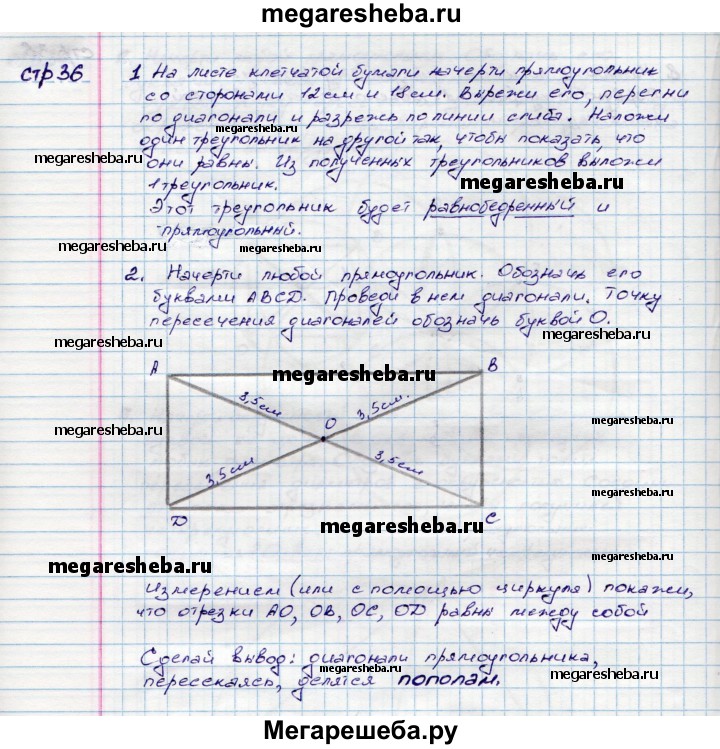 megaresheba.ru
стр 36
1 На листе клетчатой бумаги начерти прямоугольник
со сторонами 12 см и 18 см. Вырежи его, перегни
по диагонали и разрежь по линии сгиба. Наложи
megaresheba.ru
один треугольник на другой так, чтобы показать, что
megaresheba.ru
они равны. Из полученных треугольников выложи
1 треугольник.
megaresheba.ru
Этот треугольник будет равнобедренный и
прямоугольный.
megaresheba.ru
megaresheba.ru
2. Начерти любой прямоугольник. Обозначь его
буквами ABCD. Проведи в нем диагонали. Точку
пересечения диагоналей обозначь буквой O.
megaresheba.ru
megaresheba.ru
A
B
megaresheba.ru
3,5 см
3,5 см.
O
megaresheba.ru
megaresheba.ru
3,5 см
3,5 см
D
C
megaresheba.ru
megaresheba.ru
megaresheba.ru
Измерением (или с помощью циркуля) покажи,
что отрезки AO, OB, OC, OD равны между собой
Сделай вывод: диагонали прямоугольника,
megaresheba.ru
пересекаясь, делятся пополам.
megaresheba.ru
Мегарешеба.ру